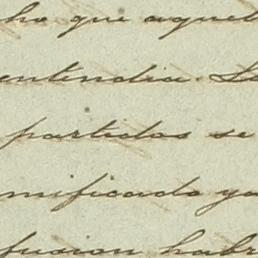 ho que aquel
entendia. Lo
partidas se
nificado ya
fusion habr